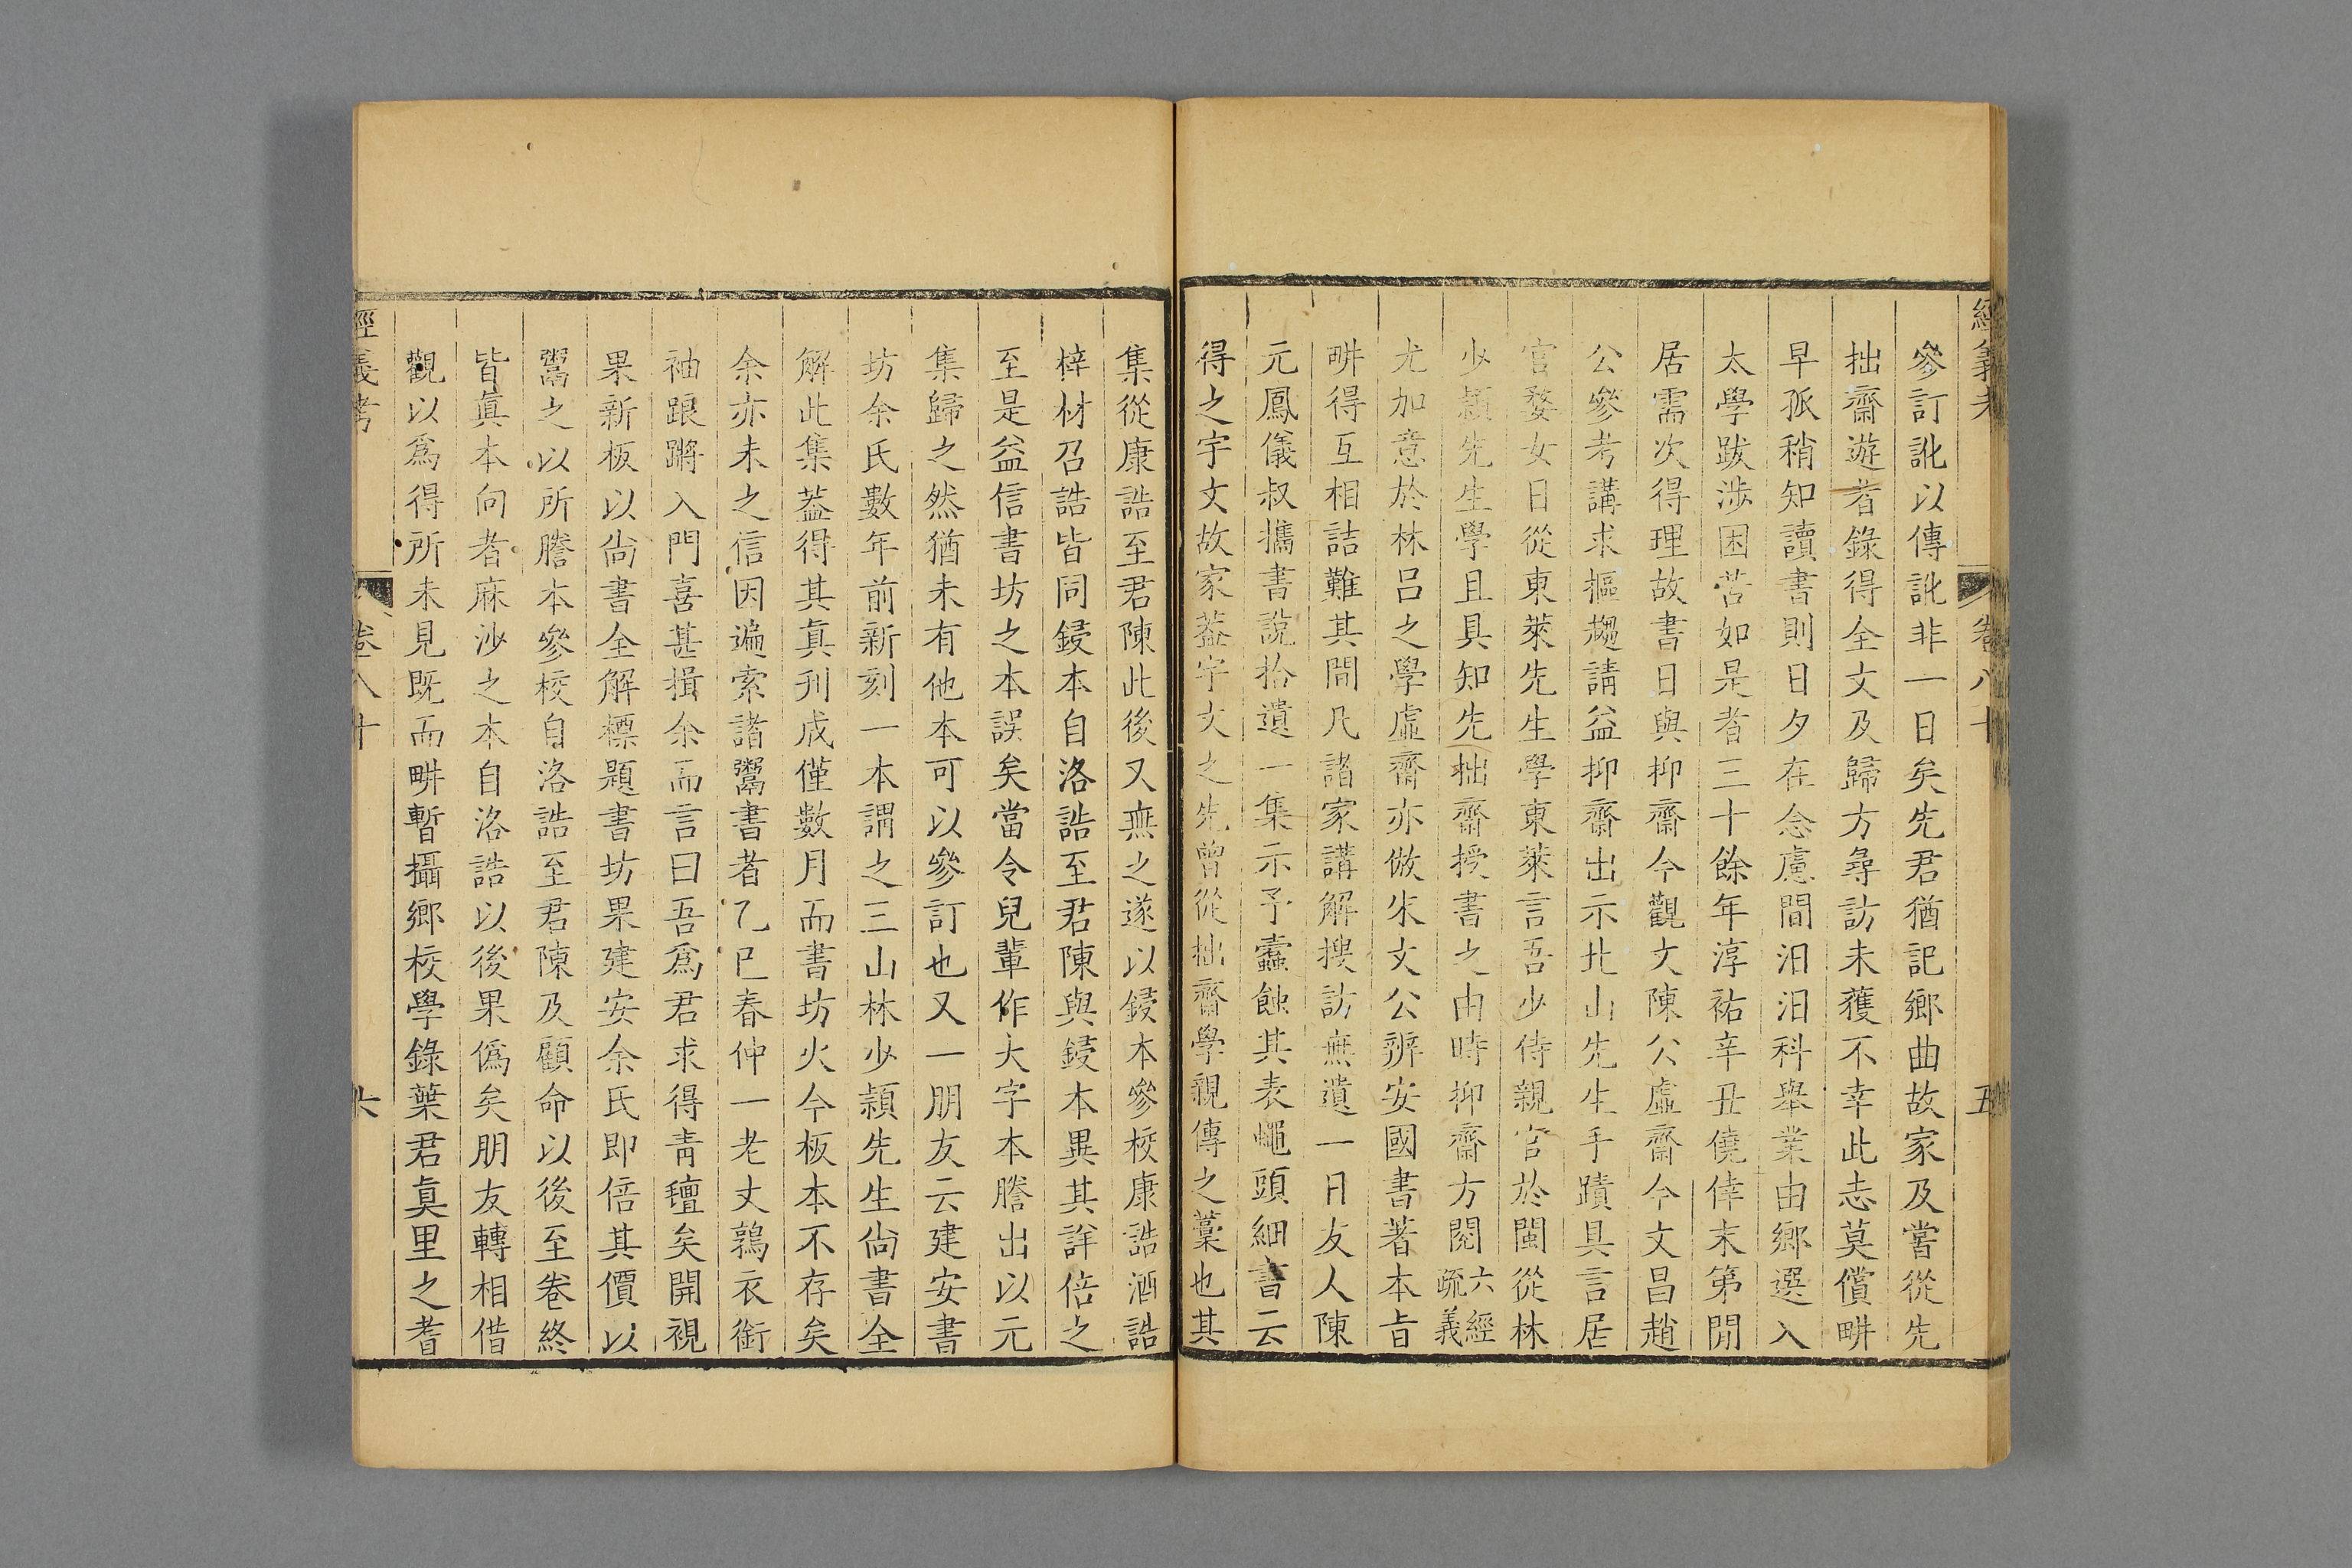 經義考 卷八十 五
參訂訛以傳訛非一日矣先君猶記鄉曲故家及嘗從先
拙齋遊者錄得全文及歸方尋訪未獲不幸此志莫償畊
早孤稍知讀書則日夕在念慮間汨汨科舉業由鄉選入
太學跋涉困苦如是者三十餘年淳祐辛丑僥倖末第閒
居需次得理故書日與抑齋今觀文陳公虛齋今文昌趙
公參考講求樞趨請益抑齋出示北山先生手蹟具言居
官婺女日從東萊先生學東萊言吾少侍親官於閩從林
少穎先生學且具知先拙齋授書之由時抑齋方閱六經疏義
尤加意於林呂之學虛齋亦倣朱文公辨安國書著本旨
畊得互相詰難其間凡諸家講解搜訪無遺一日友人陳
元鳳儀叔攜書說拾遺一集示予蠹蝕其表蠅頭細書云
得之宇文故家葢宇文之先曾從拙齋學親傳之藁也其
集從康誥至君陳此後又無之遂以鋟本參校康誥酒誥
梓材召誥皆同鋟本自洛誥至君陳與鋟本異其詳倍之
至是益信書坊之本誤矣當令兒輩作大字本謄出以元
集歸之然猶未有他本可以參訂也又一朋友云建安書
坊余氏數年前新刻一本謂之三山林少穎先生尙書全
解此集葢得其眞刋成僅數月而書坊火今板本不存矣
余亦未之信因遍索諸鬻書者乙巳春仲一老丈鶉衣銜
袖踉蹡入門喜甚揖余而言曰吾爲君求得青氊矣開視
果新板以尙書全解標題書坊果建安余氏即倍其價以
鬻之以所謄本參校自洛誥至君陳及顧命以後至卷終
皆眞本向者麻沙之本自洛誥以後果僞矣朋友轉相借
觀以爲得所未見既而畊暫攝鄉校學錄葉君眞里之耆
經義考 卷八十 六